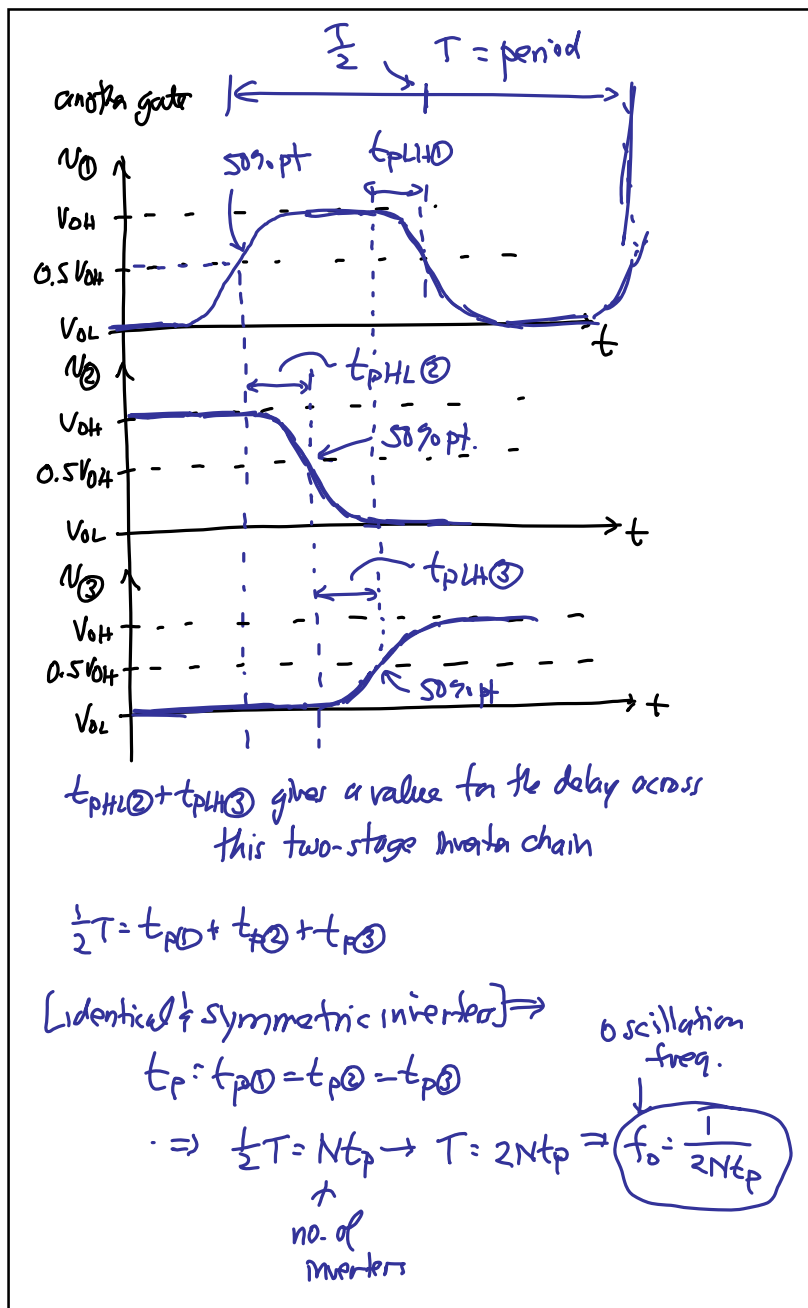 T/2 T = period
another gate
50% pt tpLH①
V①
VOH
0.5VOH
VOL
t
V② tpHL②
VOH
50% pt.
0.5VOH
VOL
t
V③ tpLH③
VOH
0.5VOH
50% pt
VOL
t
tpHL② + tpLH③ gives a value for the delay across
this two-stage inverter chain
½T = tp① + tp② + tp③
[identical & symmetric inverters] ⇒
oscillation
freq.
tp = tp① = tp② = tp③
⇒ ½T = Ntp → T = 2Ntp ⇒ fo = 1/2Ntp
no. of
inverters